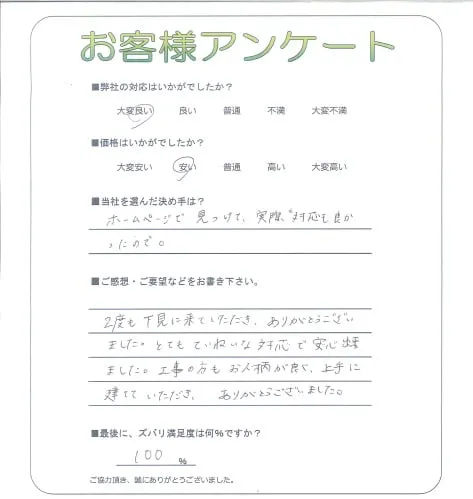 お客様アンケート
■弊社の対応はいかがでしたか？
大変良い 良い 普通 不満 大変不満
■価格はいかがでしたか？
大変安い 安い 普通 高い 大変高い
■当社を選んだ決め手は？
ホームページで 見つけて、実際、対応も良か
ったので。
■ご感想・ご要望などをお書き下さい。
2度も下見に来ていただき、ありがとうござい
ました。とてもていねいな対応で安心出来
ました。工事の方もお人柄が良く、上手に
建てていただき、ありがとうございました。
■最後に、ズバリ満足度は何%ですか？
100 %
ご協力頂き、誠にありがとうございました。